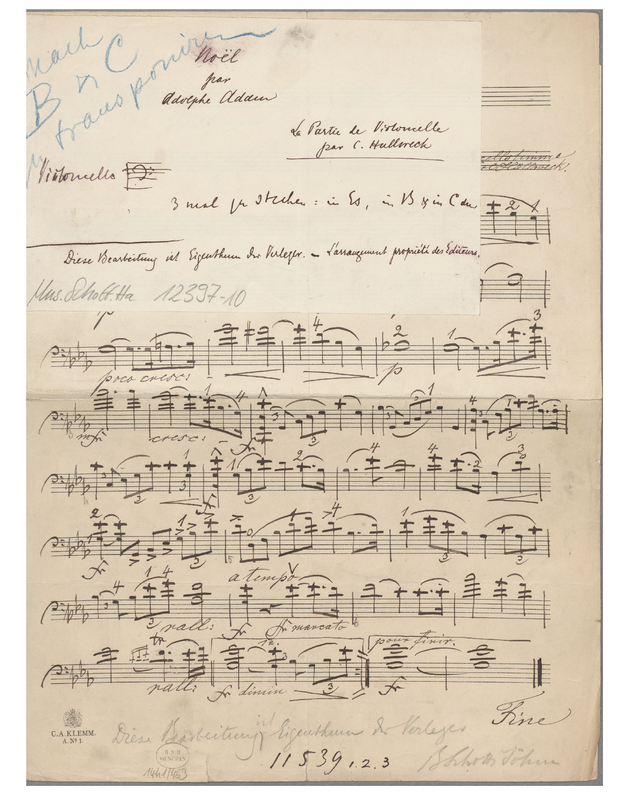 nach
B & C
transponiren
Noël
par
Adolphe Adam
La Partie de Violoncelle
par C. Hullweck
Violoncello
3 mal zu stechen: in Es, in B & in C dur
Diese Bearbeitung ist Eigenthum der Verleger. — L'arrangement propriété des Editeurs.
Mus. Schott. Ha 12397-10
2 4
p
4 2 1 3
poco cresc: - p
1 4 1 4 1
3
mfr cresc: - Fr
1 1 2 4 4 3
2 3 2
Fr
2 1 4 1
3 3
Fr
a tempo
4 1 4
rall: Fr Fr marcato
tr 1a. pour finir.
rall: Fr dimin 3 Fr
Fine
C. A. KLEMM.
A. Nº 1.
Diese Bearbeitung ist Eigenthum der Verleger
11539 1.2.3
B Schotts Söhne
B S B
MÜNCHEN